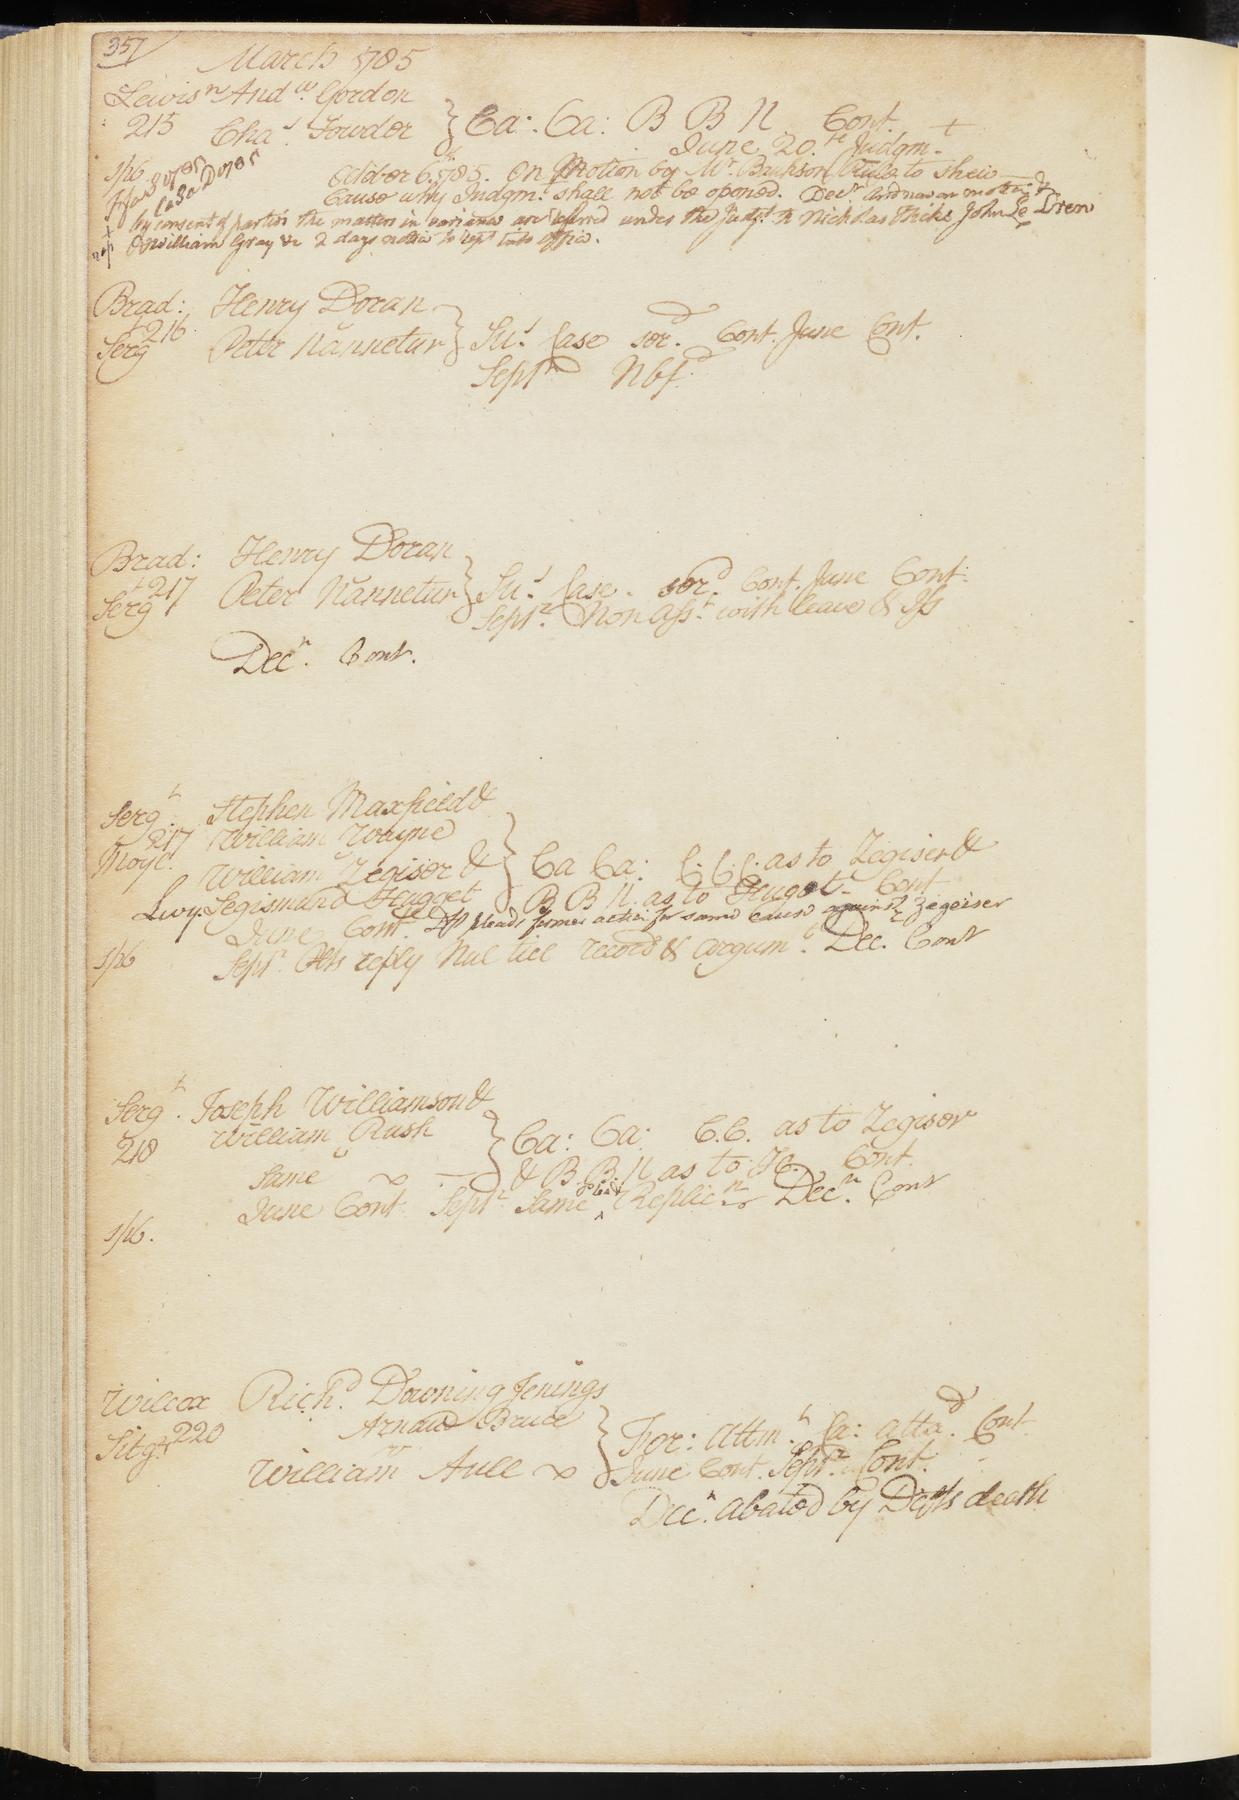 357
March 1785
Lewis n And.w Gordon
215 Cha.s Fowder } Ca: Ca: B B N Cont.
June 20.th Judgm.t +
1/6
October 6. 1785. On Motion by Mr. Rule to Shew
Cause why Judgm.t shall not be opened. Decr. And now on motion &
by consent of parties the matters in variance are referred under the Judgt. to Nicholas Hicks John Le
& William Gray &c 2 days notice to rept into office.
Brad: Henry Doran
216 v
Sergt Peter Nannetur } Su.s Case ser.d Cont. June Cont.
Septr Nbf.d
Brad: Henry Doran
217 v
Sergt Peter Nannetur } Su.s Case. ser.d Cont. June Cont.
Septr. Non Asst. with leave & Iss
Decr. Cont.
Sergt. Stephen Maxfield &
217 William Wayne
Moyl. v
William Zegiser & } Ca Ca: C.C.C. as to Zegiser &
Levy Segismund Hugget B B N. as to Hugot. Cont
June Cont. Dft pleads former action for same cause against Zegeiser
1/6 Septr. Plts reply Nul tiel record & argumt. Dec. Cont
Sergt. Joseph Williamson &
218 William Rush
v } Ca: Ca: C.C. as to Zegiser
Same & B. B. N as to H. Cont.
June Cont. Septr. Same plea Replicn. Decr. Cont
1/6.
Wilcox Rich.d Downing Jenings
220 Arnaud Bruce
Sitgs v } For: Attm.t Ca: atta.d Cont
William Aull June Cont. Septr. Cont.
Decr. abated by Defts death